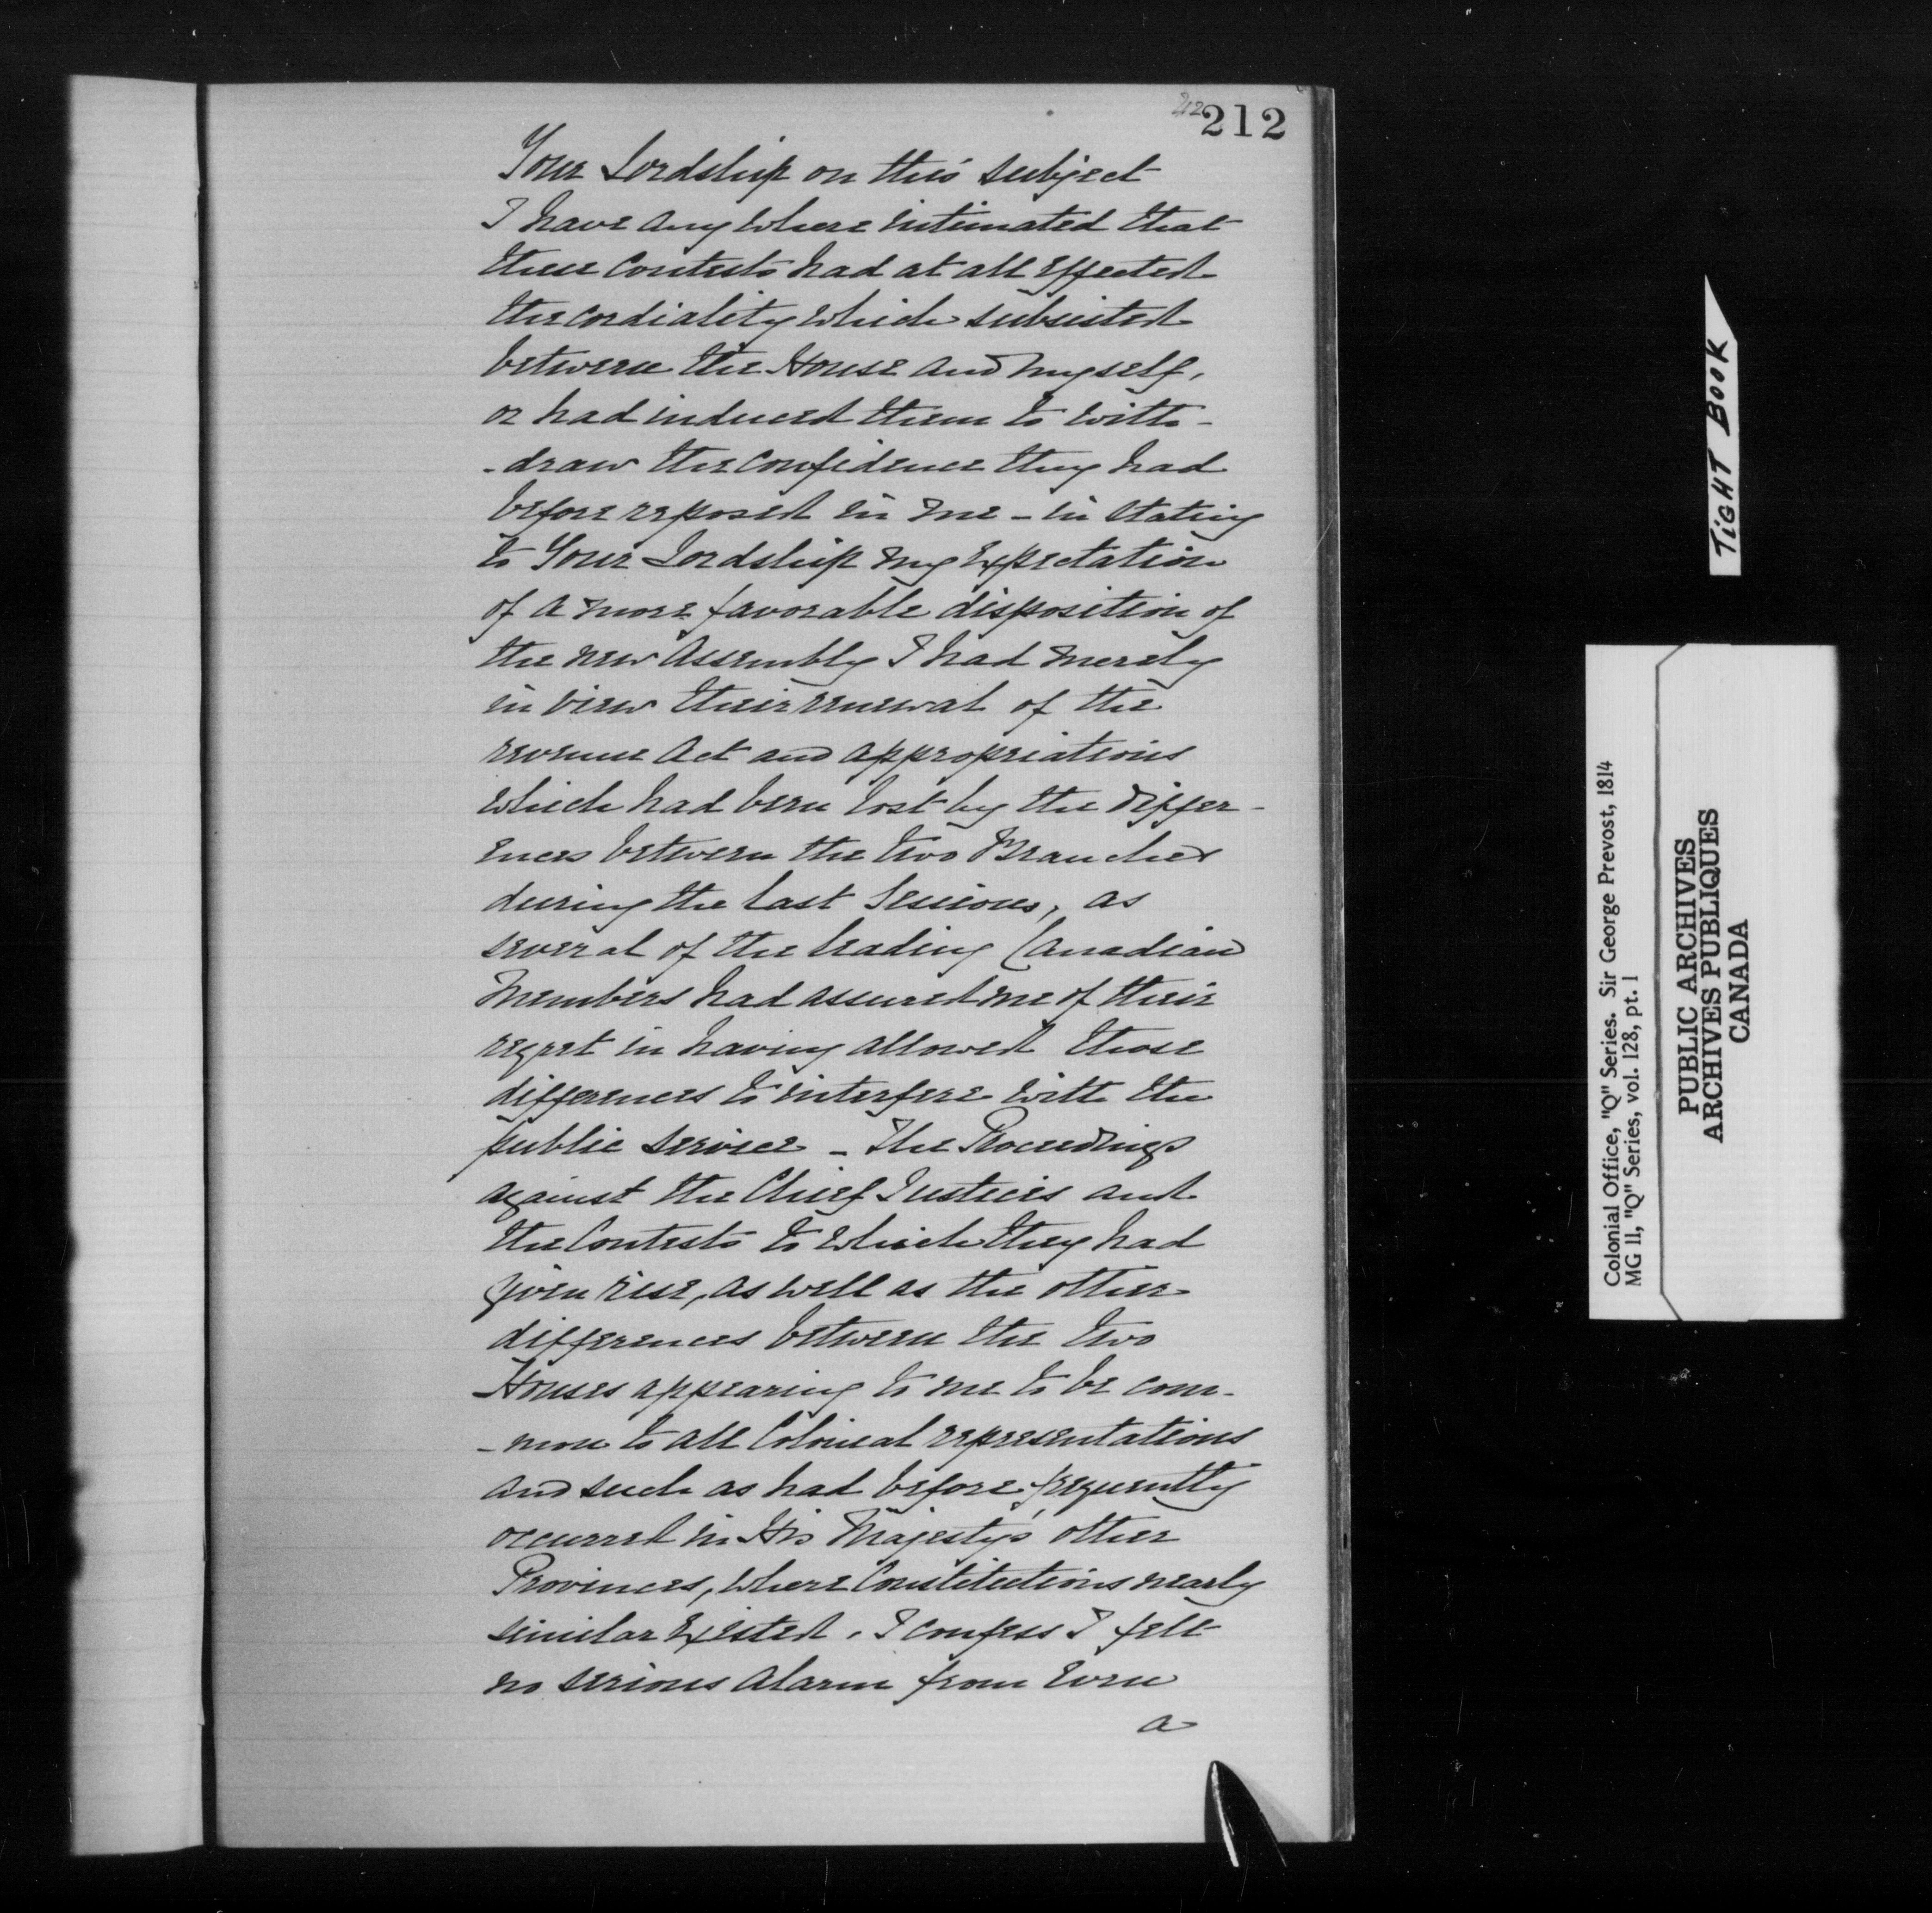 212
212
Your Lordship on this subject
I have any where intimated that
these Contests had at all effected
the cordiality which subsisted
between the House and myself,
or had induced them to with-
-draw the confidence they had
before reposed in me - in stating
to Your Lordship my Expectation
of a more favorable disposition of
the new Assembly I had merely
in view their renewal of the
revenue Act and appropriations
which had been lost by the differ-
ences between the two Branches
during the last Sessions, as
several of the leading Canadian
Members had assured me of their
regret in having allowed those
differences to interfere with the
public service - The Proceedings
against the Chief Justices and
the Contests to which they had
given rise, as well as the other
differences between the two
Houses appearing to me to be com-
-mon to all Colonial representations
and such as had before frequently
occurred in His Majesty's other
Provinces, where Constitutions nearly
similar Existed. I confess I felt
no serious alarm from even
a
TIGHT BOOK
Colonial Office, "Q" Series. Sir George Prevost, 1814
MG 11, "Q" Series, vol. 128, pt. 1
PUBLIC ARCHIVES
ARCHIVES PUBLIQUES
CANADA